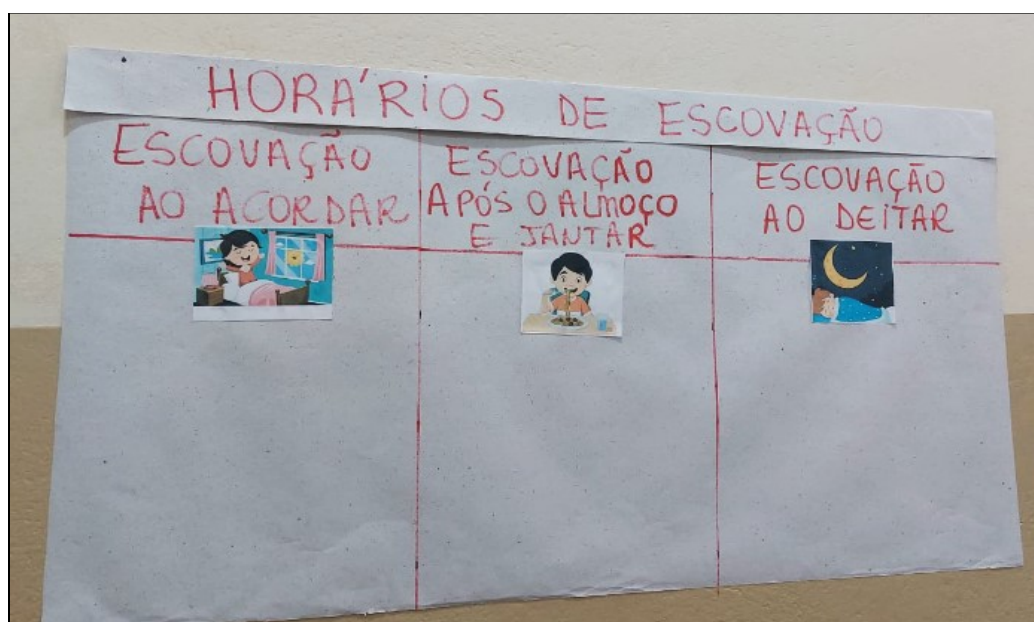 HORÁRIOS DE ESCOVAÇÃO
ESCOVAÇÃO
AO ACORDAR
ESCOVAÇÃO
APÓS O ALMOÇO
E JANTAR
ESCOVAÇÃO
AO DEITAR